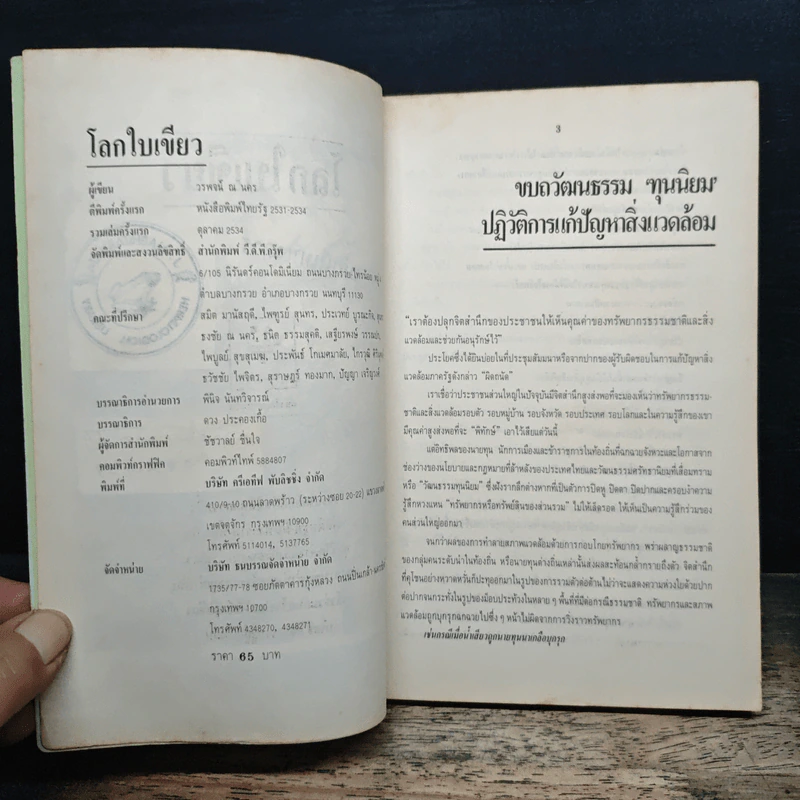 โลกใบเขียว
ผู้เขียน วรพจน์ ณ นคร
ตีพิมพ์ครั้งแรก หนังสือพิมพ์ไทยรัฐ 2531-2534
รวมเล่มครั้งแรก ตุลาคม 2534
จัดพิมพ์และสงวนลิขสิทธิ์ สำนักพิมพ์ วี.ดี.พี.กรุ๊พ
6/105 นิรันดร์คอนโดมิเนี่ยม ถนนบางกรวย-ไทรน้อย หมู่
ตำบลบางกรวย อำเภอบางกรวย นนทบุรี 11130
คณะที่ปรึกษา สมิต มานัสฤดี, ไพฑูรย์ สุนทร, ประเวทย์ บูรณะกิจ,
ธงชัย ณ นคร, ธนิต ธรรมสุคติ, เสฐียรพงษ์
ไพบูลย์ สุขสุเมฆ, ประพันธ์ โกเมศมาลัย, ไกรวุฒิ
ธวัชชัย ไพจิตร, สุราษฎร์ ทองมาก, ปัญญา
บรรณาธิการอำนวยการ พินิจ นันทวิจารณ์
บรรณาธิการ ดวง ประคองเกื้อ
ผู้จัดการสำนักพิมพ์ ชัชวาลย์ ชื่นใจ
คอมพิวท์กราฟฟิค คอมพิวท์ไทพ์ 5884807
พิมพ์ที่ บริษัท ครีเอทีฟ พับลิชชิ่ง จำกัด
410/9-10 ถนนลาดพร้าว (ระหว่างซอย 20-22)
เขตจตุจักร กรุงเทพฯ 10900
โทรศัพท์ 5114014, 5137765
จัดจำหน่าย บริษัท ธนบรรณจัดจำหน่าย จำกัด
1735/77-78 ซอยภัตตาคารกุ้งหลวง ถนนปิ่นเกล้า
กรุงเทพฯ 10700
โทรศัพท์ 4348270, 4348271
ราคา 65 บาท
3
ขบถวัฒนธรรม 'ทุนนิยม'
ปฏิวัติการแก้ปัญหาสิ่งแวดล้อม
"เราต้องปลุกจิตสำนึกของประชาชนให้เห็นคุณค่าของทรัพยากรธรรมชาติและสิ่ง
แวดล้อมและช่วยกันอนุรักษ์ไว้"
ประโยคซึ่งได้ยินบ่อยในที่ประชุมสัมมนาหรือจากปากของผู้รับผิดชอบในการแก้ปัญหาสิ่ง
แวดล้อมภาครัฐดังกล่าว "ผิดถนัด"
เราเชื่อว่าประชาชนส่วนใหญ่ในปัจจุบันมีจิตสำนึกสูงส่งพอที่จะมองเห็นว่าทรัพยากรธรรม-
ชาติและสิ่งแวดล้อมรอบตัว รอบหมู่บ้าน รอบจังหวัด รอบประเทศ รอบโลกและในความรู้สึกของเขา
มีคุณค่าสูงส่งพอที่จะ "พิทักษ์" เอาไว้เสียแต่วันนี้
แต่อิทธิพลของนายทุน นักการเมืองและข้าราชการในท้องถิ่นที่ฉกฉวยจังหวะและโอกาสจาก
ช่องว่างของนโยบายและกฎหมายที่ล้าหลังของประเทศไทยและวัฒนธรรมศรัทธานิยมที่เสื่อมทราม
หรือ "วัฒนธรรมทุนนิยม" ซึ่งฝังรากลึกต่างหากที่เป็นตัวการปิดหู ปิดตา ปิดปากและครอบงำความ
รู้สึกหวงแหน "ทรัพยากรหรือทรัพย์สินของส่วนรวม" ไม่ให้เล็ดรอด ให้เห็นเป็นความรู้สึกร่วมของ
คนส่วนใหญ่ออกมา
จนกว่าผลของการทำลายสภาพแวดล้อมด้วยการกอบโกยทรัพยากร พร่าผลาญธรรมชาติ
ของกลุ่มคนระดับนำในท้องถิ่น หรือนายทุนต่างถิ่นเหล่านั้นส่งผลสะท้อนกล้ำกรายถึงตัว จิตสำนึก
ที่คุโชนอย่างหวาดหวั่นก็ปะทุออกมาในรูปของการรวมตัวต่อต้านไม่ว่าจะแสดงความห่วงใยด้วยปาก
ต่อปากจนกระทั่งในรูปของม็อบประท้วงในหลาย ๆ พื้นที่ที่มีต่อกรณีธรรมชาติ ทรัพยากรและสภาพ
แวดล้อมถูกบุกรุกฉกฉวยไปซึ่ง ๆ หน้าไม่ผิดจากการวิ่งราวทรัพยากร
เช่นกรณีเมื่อน้ำเสียวถูกนายทุนนาเกลือบุกรุก